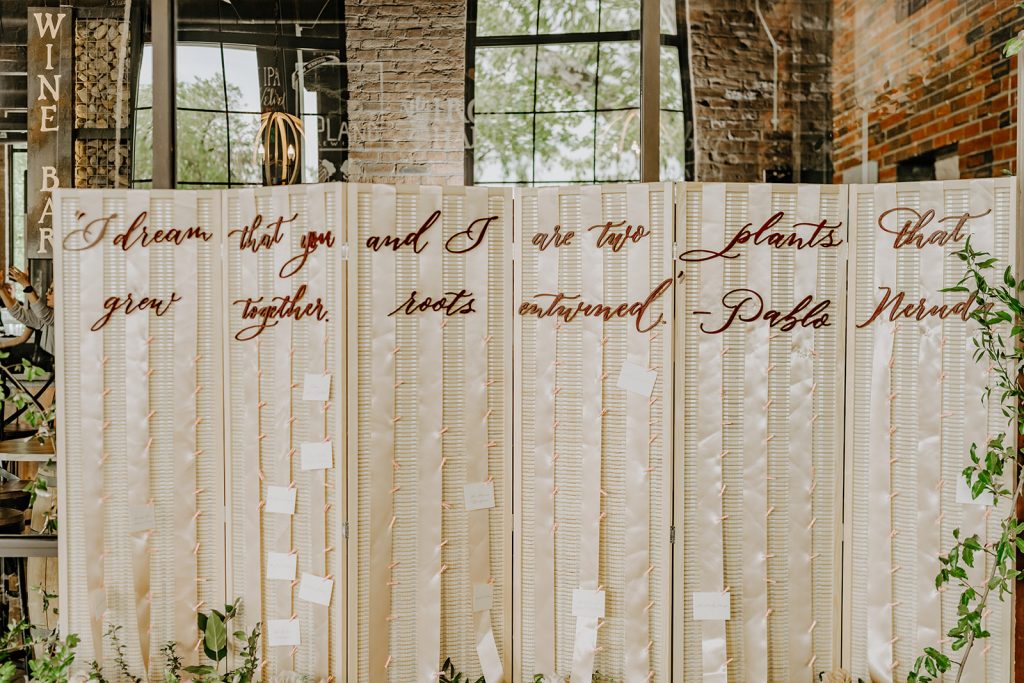 WINE BAR
IPA
"I dream that you and I are two plants that
grew together, roots entwined." -Pablo Neruda